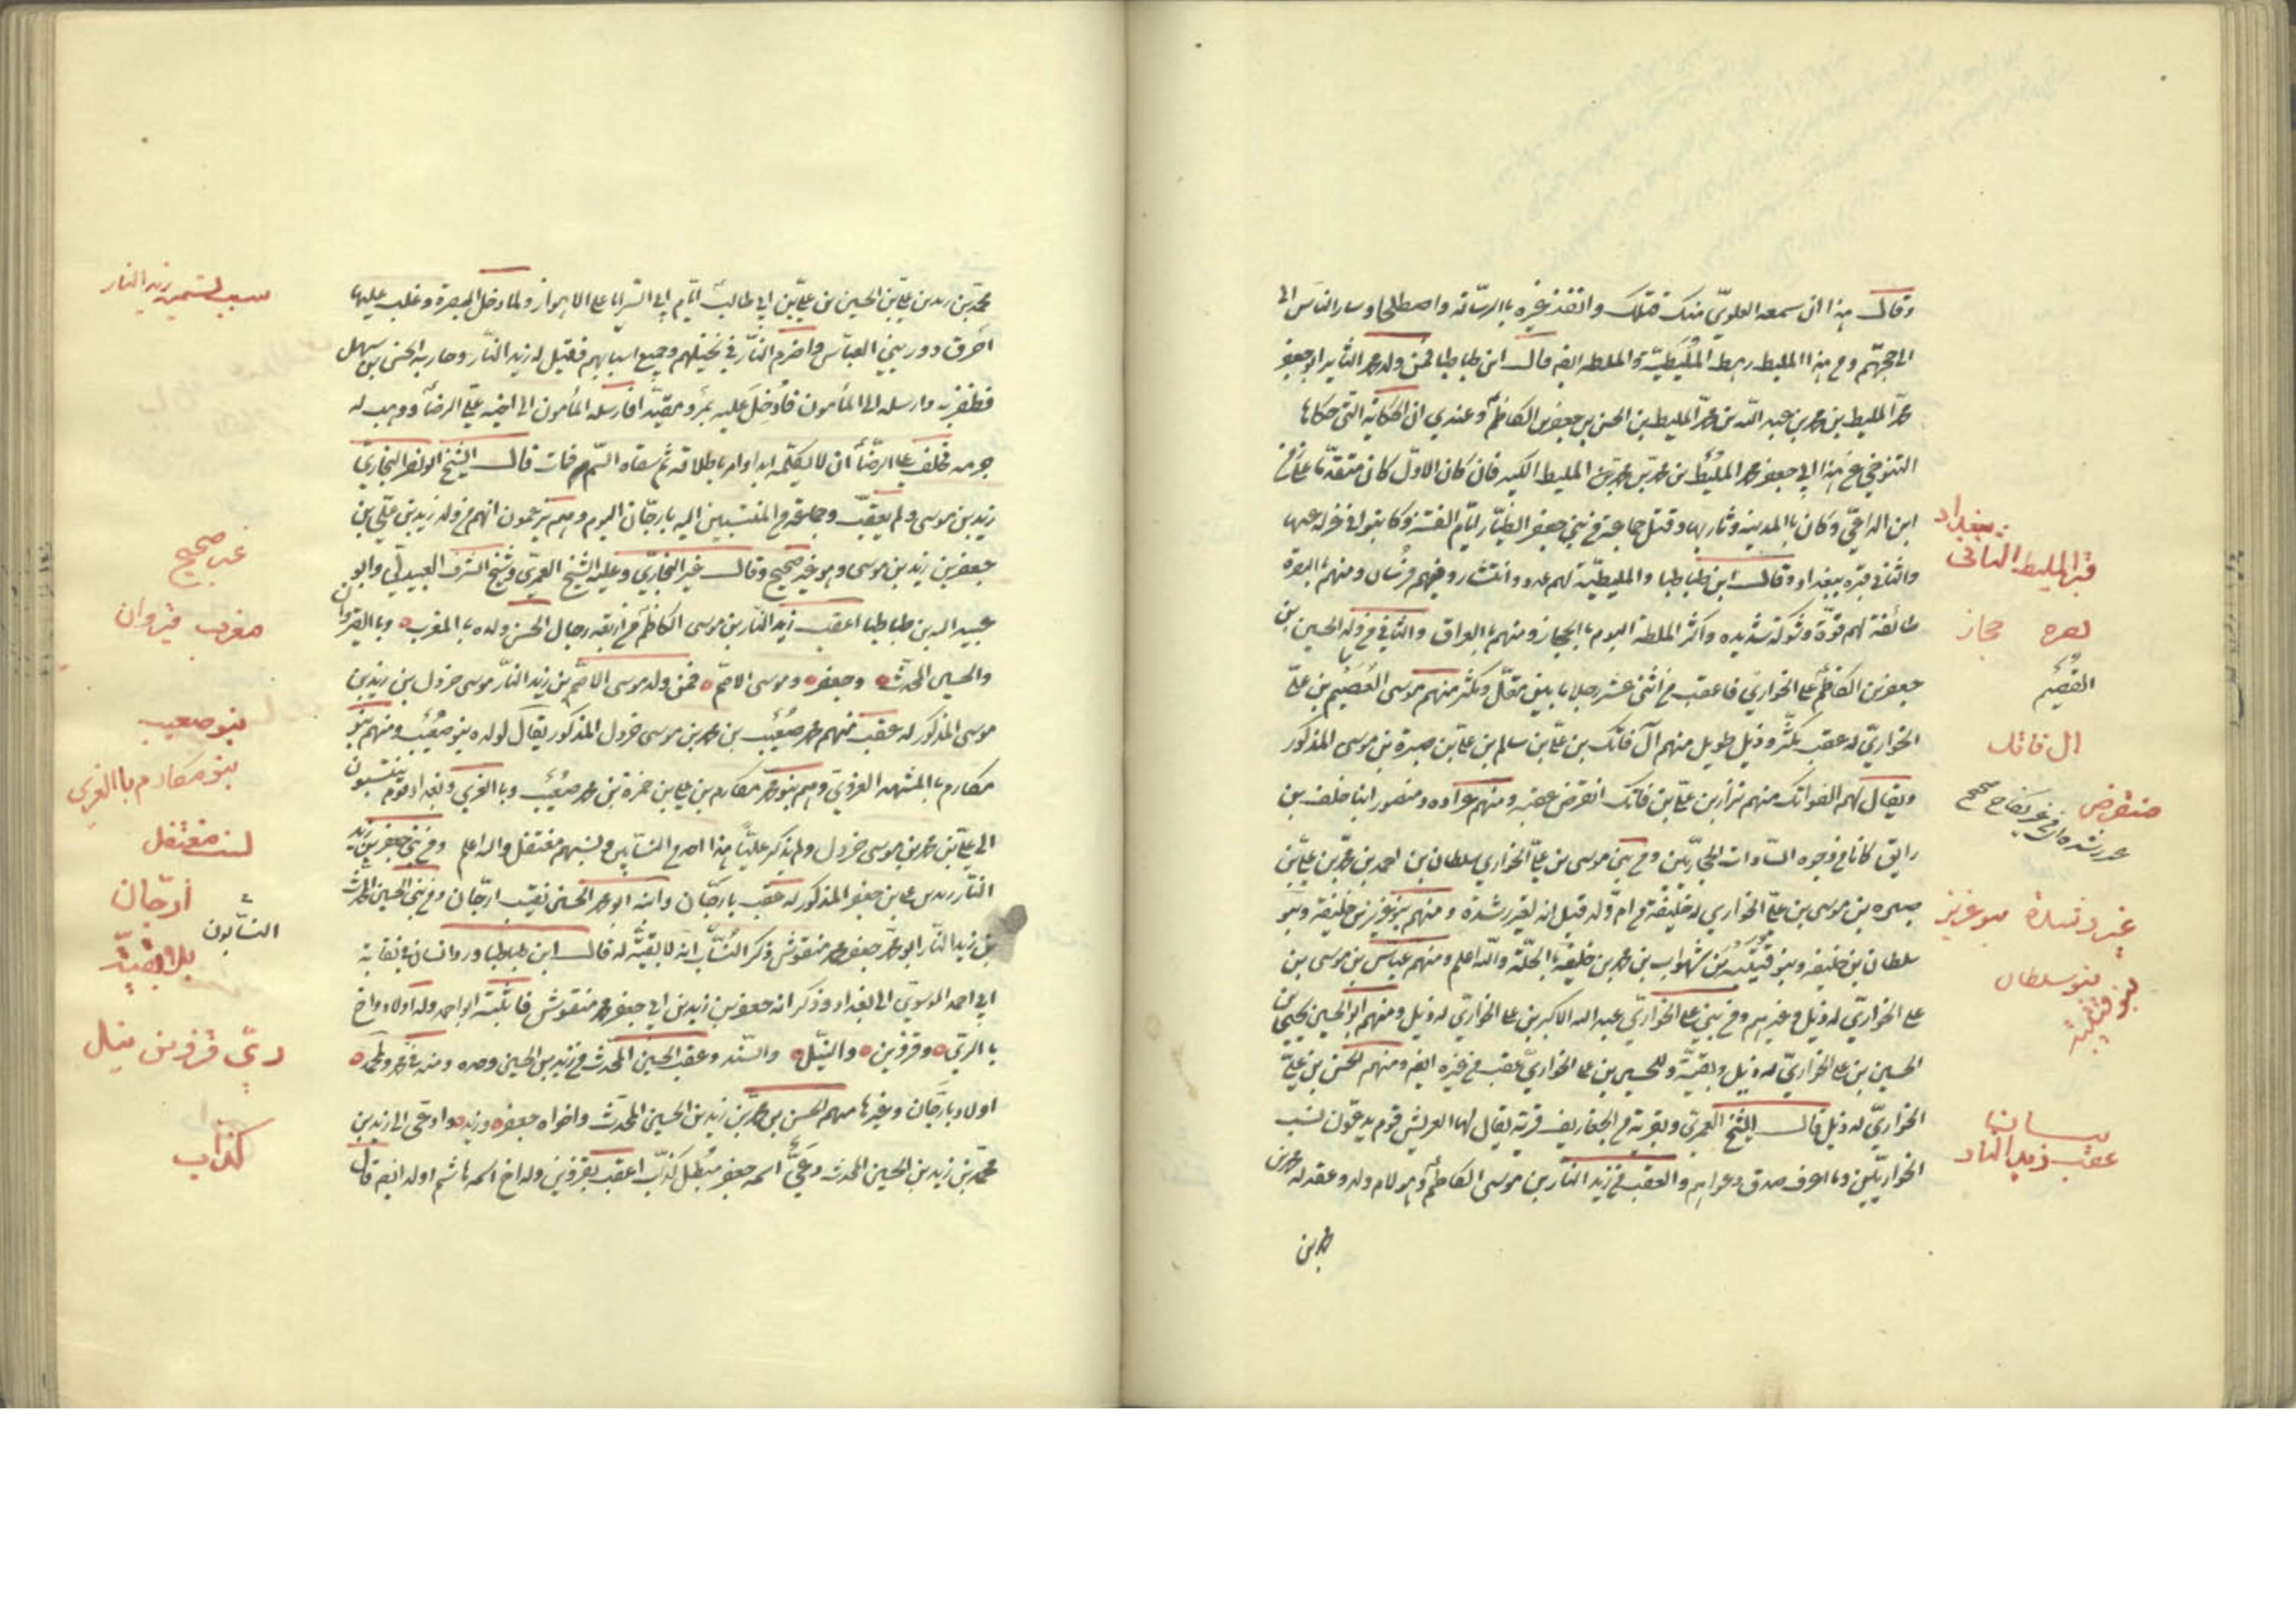 وقال هذا ان سمعه العلوي منك قتلك وانفذ غيره بالرسالة واصطلحا وسار الناس الى
الى حجهم ومن هذا المليط رهط المليطية والملطه ايضا قال ابن طباطبا فمن ولد محمد الثاير ابو جعفر
محمد المليط بن محمد بن عبد الله بن محمد المليط بن الحسن بن جعفر بن الكاظم وعندي ان الحكاية التي حكاها
التنوخي عن هذا ابي جعفر محمد المليط بن محمد بن محمد بن المليط الكبير فان كان الاول كان متقدما على زمن
ابن الداعي وكان بالمدينة وثار بها وقتل جماعة من بني جعفر الطيار ايام الفتنة وكانوا في غزله عنها
والثاني قبره ببغداد وقال ابن طباطبا والمليطية لهم عدد وانتشار وفيهم فرسان ومنهم بالبصرة
طائفة لهم قوة وشوكة شديده واكثر الملطة اليوم بالحجاز ومنهم بالعراق والثاني في ولد الحسين بن
جعفر بن الكاظم على الخواري فاعقب من اثني عشر رجلا ما بين مقل ومكثر منهم موسى العصيم بن علي
الخواري له عقب مكثر وذيل طويل منهم آل فاتك بن علي بن سالم بن علي بن صبرة بن موسى المذكور
ويقال لهم الفواتك منهم نزار بن علي بن فاتك انقرض عقبه ومنهم عراده ومنصور ابنا خلف بن
رايق كانا من وجوه السادات الحجازيين ومن بني موسى بن علي الخواري سلطان بن احمد بن محمد بن علي بن
صبره بن موسى بن علي الخواري له خليفة من ام ولد قيل انه لغير رشدة ومنهم بنو عزيز بن خليفة وبنو
سلطان بن خليفه وبنو قتيلة بن شهوان بن محمد بن خليفه بالحلة والله اعلم ومنهم عباس بن موسى بن
علي الخواري له ذيل وغيرهم ومن بني علي الخواري عبد الله الاكبر بن علي الخواري له ذيل ومنهم ابو الحسين يحيى بن
الحسين بن علي الخواري له ذيل وبقية وللحسين بن علي الخواري عقب من غيره ايضا ومنهم الحسن بن علي
الخواري له ذيل قال الشيخ العمري وبقرية من الجفار يف قرية يقال لها العريش قوم يدعون نسب
الخواريين وما اعرف صدق دعواهم والعقب من زيد النار بن موسى الكاظم وهو لام ولد وعقد له محمد بن
محمد بن
ببغداد
قبر المليط الثانى
بصره حجاز
العصيم
ال فاتك
منقرض
بنو عزيز
بنو سلطان
بنو قتيلة
بيان
عقب زيد النار
محمد بن زيد بن علي بن الحسين بن علي بن ابي طالب ايام ابي السرايا على الاهواز ولما دخل البصرة وغلب عليها
احرق دور بني العباس واضرم النار في نخيلهم وجميع اسبابهم فقيل له زيد النار وحاربه الحسن بن سهل
فظفر به وارسله الى المأمون فأدخل عليه بمرو مقيدا فارسله المأمون الى اخيه علي الرضا ووهب له
جرمه فحلف علي الرضا ان لا يكلمه ابدا وامر باطلاقه ثم سقاه السم فمات قال الشيخ ابو نصر البخاري
زيد بن موسى ولم يعقب وجماعة من المنتسبين اليه بارجان اليوم وهم يزعمون انهم من ولد زيد بن علي بن
جعفر بن زيد بن موسى وهو غير صحيح وقال غير البخاري وعليه الشيخ العمري وشيخ الشرف العبيدلي وابو
عبد الله بن طباطبا اعقب زيد النار بن موسى الكاظم من اربعة رجال الحسن ولده بالمغرب وبالقيروان
والحسين المحدث وجعفر وموسى الاصم فمن ولد موسى الاصم بن زيد النار موسى خردل بن زيد بن
موسى المذكور له عقب منهم محمد صعيب بن محمد بن موسى خردل المذكور يقال لولده بنو صعيب ومنهم بنو
مكارم بالمشهد الغروي وهم بنو محمد مكارم بن علي بن حمزة بن محمد صعيب وبالغري وبغداد قوم ينتسبون
الى علي بن محمد بن موسى خردل ولم يذكر عليا هذا احد من النسابين ونسبهم مفتعل والله اعلم ومن بني جعفر بن زيد
النار زيد بن علي بن جعفر المذكور له عقب بارجان وابنه ابو محمد الحسن نقيب ارجان ومن بني الحسين المحدث
بن زيد النار ابو محمد جعفر محمد منقوش ذكر النساب انه لا بقية له قال ابن طباطبا ورد انسان في نقابة
ابي احمد الموسوي الى بغداد وذكر انه جعفر بن زيد بن ابي جعفر محمد منقوش فاثبته ابو احمد وله اولاد واخ
بالري وقزوين والنيل والسند وعقب الحسين المحدث من زيد بن الحسين وحده ومنه في محمد ولمحمد
اولاد بارجان وغيرها منهم الحسن بن محمد بن زيد بن الحسين المحدث واخواه جعفر وزيد وادعى الى زيد بن
محمد بن زيد بن الحسين المحدث دعي اسمه جعفر مبطل كذاب اعقب بقزوين وله اخ اسمه هاشم اولد ايضا قال
سبب تسمية زيد النار
غير صحيح
مغرب قيروان
بنو صعيب
بنو مكارم باالغري
نسب مفتعل
ارجان
النسابون
بلا بقية
ري قزوين نيل
كذاب